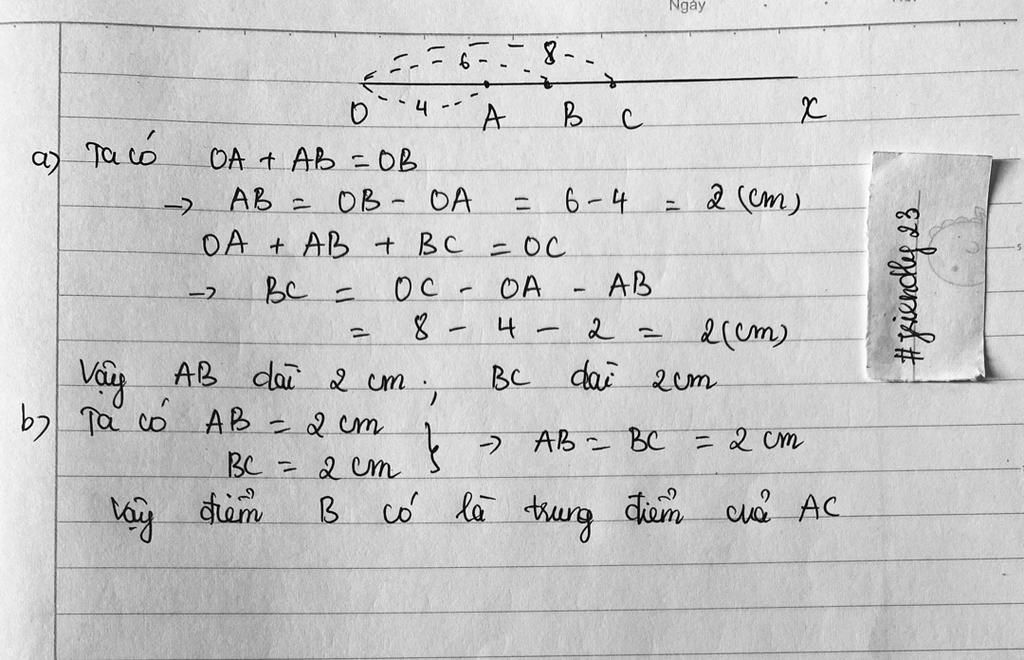 Ngày
6 8
4
O A B C x
a) Ta có OA + AB = OB
→ AB = OB - OA = 6 - 4 = 2 (cm)
OA + AB + BC = OC
→ BC = OC - OA - AB
= 8 - 4 - 2 = 2 (cm)
Vậy AB dài 2 cm ; BC dài 2cm
b) Ta có AB = 2 cm
BC = 2 cm } → AB = BC = 2 cm
Vậy điểm B có là trung điểm của AC
#friendly23